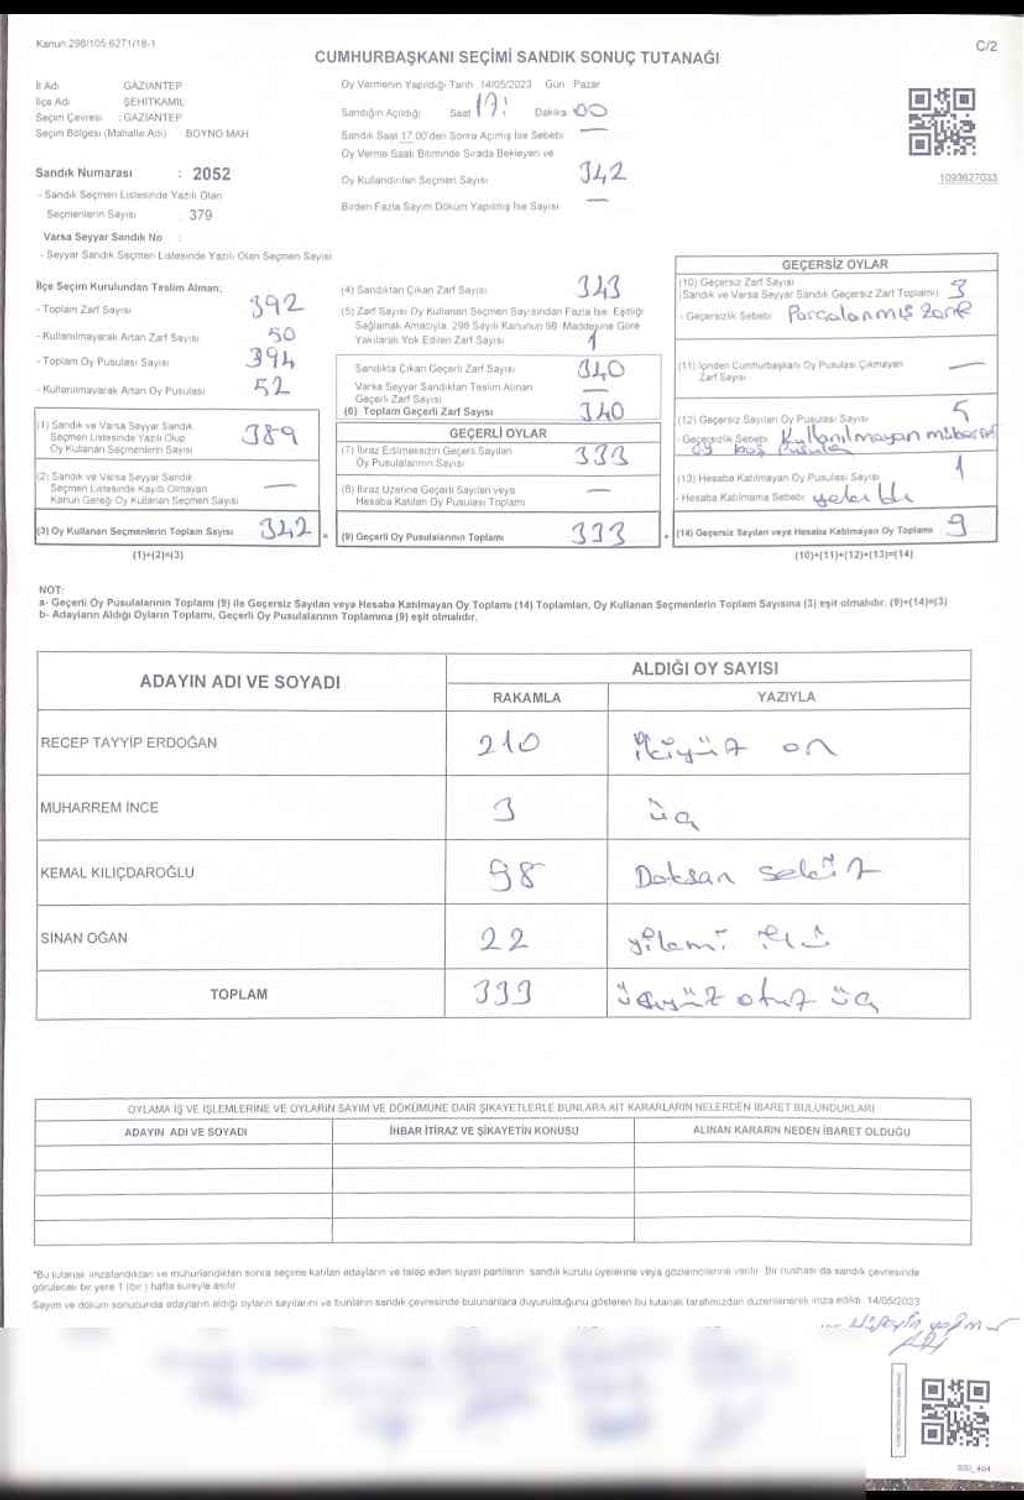 Kanun:298/105 6271/18-1
C/2
CUMHURBAŞKANI SEÇİMİ SANDIK SONUÇ TUTANAĞI
İl Adı GAZİANTEP
İlçe Adı ŞEHİTKAMİL
Seçim Çevresi : GAZİANTEP
Seçim Bölgesi (Mahalle Adı) BOYNO MAH
Sandık Numarası : 2052
- Sandık Seçmen Listesinde Yazılı Olan
Seçmenlerin Sayısı 379
Varsa Seyyar Sandık No :
- Seyyar Sandık Seçmen Listesinde Yazılı Olan Seçmen Sayısı
Oy Vermenin Yapıldığı Tarih 14/05/2023 Gün Pazar
Sandığın Açıldığı Saat 17: Dakika 00
Sandık Saat 17.00'den Sonra Açımış İse Sebebi —
Oy Verme Saati Bitiminde Sırada Bekleyen ve
Oy Kullandırılan Seçmen Sayısı 342
Birden Fazla Sayım Döküm Yapılmış İse Sayısı —
1093627033
İlçe Seçim Kurulundan Teslim Alınan:
- Toplam Zarf Sayısı 392
- Kullanılmayarak Artan Zarf Sayısı 50
- Toplam Oy Pusulası Sayısı 394
- Kullanılmayarak Artan Oy Pusulası 52
(1) Sandık ve Varsa Seyyar Sandık
Seçmen Listesinde Yazılı Olup
Oy Kullanan Seçmenlerin Sayısı 389
(2) Sandık ve Varsa Seyyar Sandık
Seçmen Listesinde Kayıtlı Olmayan
Kanun Gereği Oy Kullanan Seçmen Sayısı —
(3) Oy Kullanan Seçmenlerin Toplam Sayısı 342 =
(1)+(2)=(3)
(4) Sandıktan Çıkan Zarf Sayısı 343
(5) Zarf Sayısı Oy Kullanan Seçmen Sayısından Fazla İse, Eşitliği
Sağlamak Amacıyla, 298 Sayılı Kanunun 98. Maddesine Göre
Yakılarak Yok Edilen Zarf Sayısı 1
Sandıkta Çıkan Geçerli Zarf Sayısı 340
Varsa Seyyar Sandıktan Teslim Alınan
Geçerli Zarf Sayısı —
(6) Toplam Geçerli Zarf Sayısı 340
GEÇERLİ OYLAR
(7) İtiraz Edilmeksizin Geçerli Sayılan
Oy Pusulalarının Sayısı 333
(8) İtiraz Üzerine Geçerli Sayılan veya
Hesaba Katılan Oy Pusulası Toplamı —
(9) Geçerli Oy Pusulalarının Toplamı 333 +
GEÇERSİZ OYLAR
(10) Geçersiz Zarf Sayısı
(Sandık ve Varsa Seyyar Sandık Geçersiz Zarf Toplamı) 3
- Geçersizlik Sebebi Parçalanmış zarf
(11) İçinden Cumhurbaşkanı Oy Pusulası Çıkmayan
Zarf Sayısı —
(12) Geçersiz Sayılan Oy Pusulası Sayısı 5
- Geçersizlik Sebebi Kullanılmayan mühürsüz
oy boş pusula
(13) Hesaba Katılmayan Oy Pusulası Sayısı 1
- Hesaba Katılmama Sebebi yakıldı
(14) Geçersiz Sayılan veya Hesaba Katılmayan Oy Toplamı 9
(10)+(11)+(12)+(13)=(14)
NOT:
a- Geçerli Oy Pusulalarının Toplamı (9) ile Geçersiz Sayılan veya Hesaba Katılmayan Oy Toplamı (14) Toplamları, Oy Kullanan Seçmenlerin Toplam Sayısına (3) eşit olmalıdır. (9)+(14)=(3)
b- Adayların Aldığı Oyların Toplamı, Geçerli Oy Pusulalarının Toplamına (9) eşit olmalıdır.
ADAYIN ADI VE SOYADI
ALDIĞI OY SAYISI
RAKAMLA YAZIYLA
RECEP TAYYİP ERDOĞAN 210 İkiyüz on
MUHARREM İNCE 3 üç
KEMAL KILIÇDAROĞLU 98 Doksan sekiz
SİNAN OĞAN 22 yirmi iki
TOPLAM 333 üçyüz otuz üç
OYLAMA İŞ VE İŞLEMLERİNE VE OYLARIN SAYIM VE DÖKÜMÜNE DAİR ŞİKAYETLERLE BUNLARA AİT KARARLARIN NELERDEN İBARET BULUNDUKLARI
ADAYIN ADI VE SOYADI İHBAR İTİRAZ VE ŞİKAYETİN KONUSU ALINAN KARARIN NEDEN İBARET OLDUĞU
*Bu tutanak imzalandıktan ve mühürlendikten sonra seçime katılan adayların ve talep eden siyasi partilerin sandık kurulu üyelerine veya gözlemcilerine verilir. Bir nüshası da sandık çevresinde
görülecek bir yere 1 (bir) hafta süreyle asılır
Sayım ve döküm sonucunda adayların aldığı oyların sayılarını ve bunların sandık çevresinde bulunanlara duyurulduğunu gösteren bu tutanak tarafımızdan düzenlenerek imza edildi. 14/05/2023